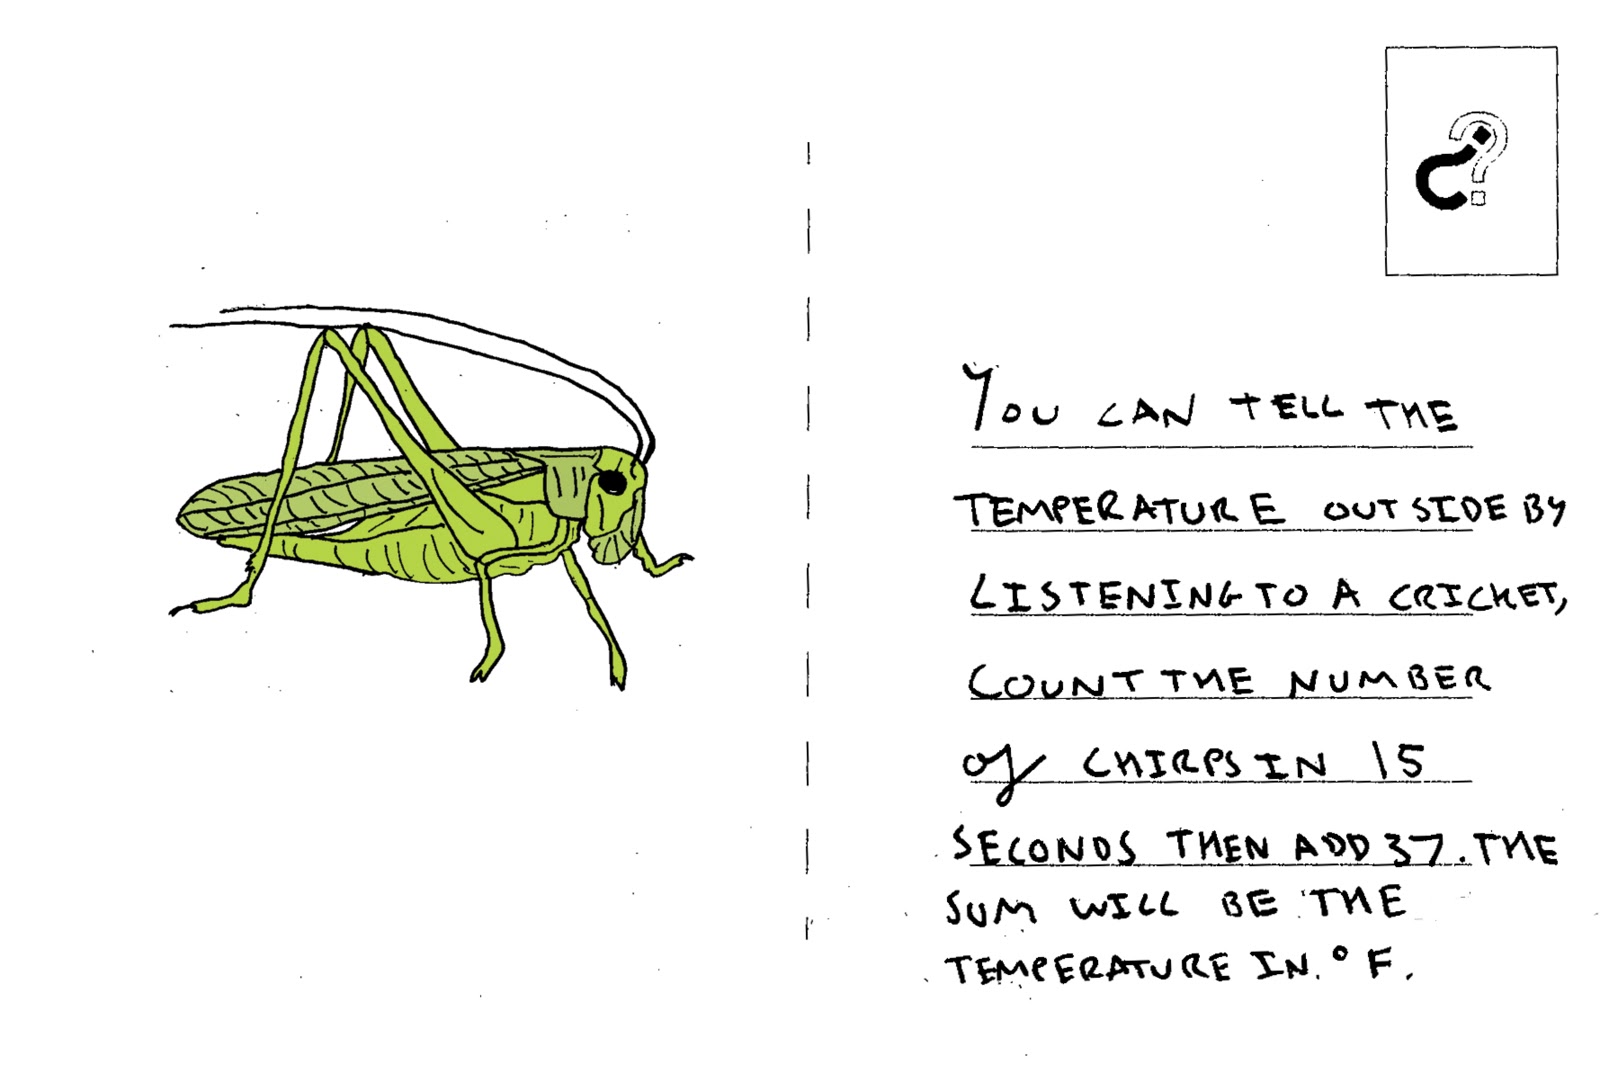 YOU CAN TELL THE
TEMPERATURE OUTSIDE BY
LISTENING TO A CRICKET,
COUNT THE NUMBER
of CHIRPS IN 15
SECONDS THEN ADD 37. THE
SUM WILL BE THE
TEMPERATURE IN ° F.